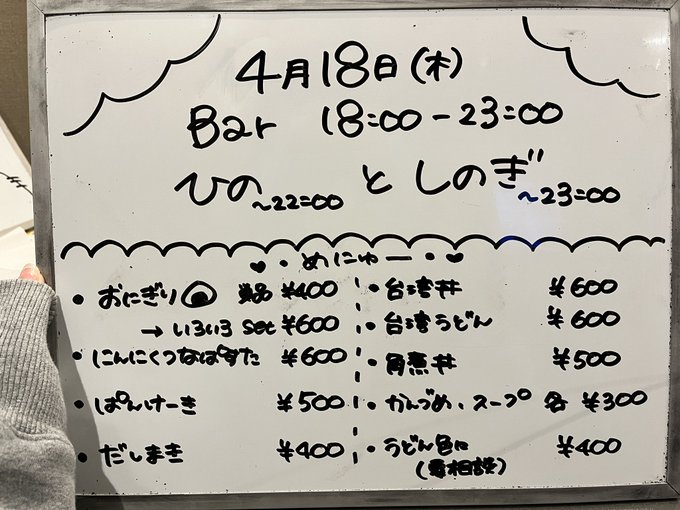 4月18日(木)
Bar 18:00-23:00
ひの~22:00 と しのぎ~23:00
めにゅー
・おにぎり 単品 ¥400
→いろいろset ¥600
・にんにくつなぱすた ¥600
・ぱんけーき ¥500
・だしまき ¥400
・台湾丼 ¥600
・台湾うどん ¥600
・角煮丼 ¥500
・かんづめ、スープ 各 ¥300
・うどん ¥400
(要相談)